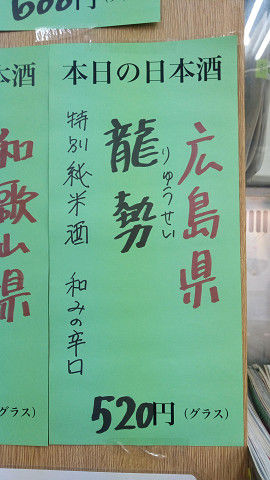 600円(グラ
本日の日本酒
広島県
りゅうせい
龍勢
特別純米酒 和みの辛口
520円(グラス)
本酒
和歌山県
グラス)